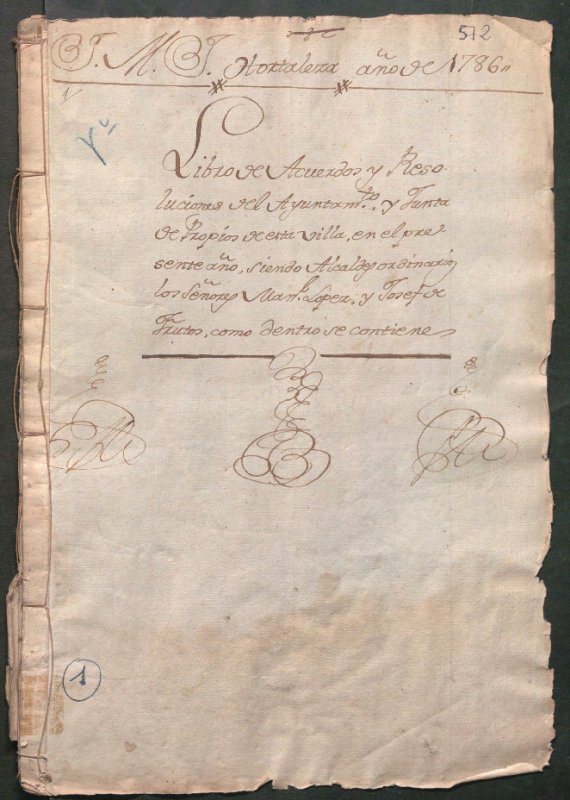 512
J. M. J. Hortaleza año de 1786„
Libro de Acuerdos, y Reso-
luciones del Ayuntam.to, y Junta
de Propios de esta Villa, en el pre-
sente año, siendo Alcaldes ordinarios
los Señores Man.l Lopez, y Josef de
Frutos, como dentro se contiene
1